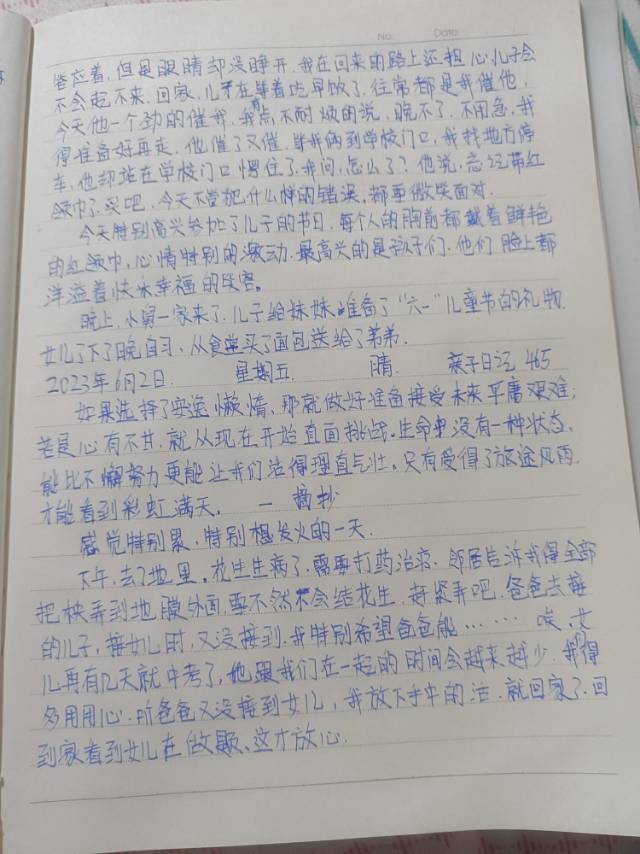 No. Date.
答应着，但是眼睛却没睁开。我在回来的路上还担心儿子会
不会起不来。回家，儿子在等着吃早饭了。往常都是我催他，
今天他一个劲的催我，我有点不耐烦的说，晚不了，不用急，我
得准备好再走。他催了又催，等我俩到学校门口，我找地方停
车，他却站在学校门口愣住了。我问，怎么了？他说，忘记带红
领巾了。买吧，今天不管犯什么样的错误，都要微笑面对。
今天特别高兴参加了儿子的节日，每个人的胸前都戴着鲜艳
的红领巾，心情特别的激动。最高兴的是孩子们，他们脸上都
洋溢着快乐幸福的笑容。
晚上，小舅一家来了，儿子给妹妹准备了“六一”儿童节的礼物，
女儿下了晚自习，从食堂买了面包送给了弟弟。
2023年6月2日 星期五 晴 亲子日记 465
如果选择了安逸懒惰，那就做好准备接受未来平庸艰难；
若是心有不甘，就从现在开始直面挑战。生命中没有一种状态，
能比不懈努力更能让我们活得理直气壮。只有受得了旅途风雨
才能看到彩虹满天。 — 摘抄
感觉特别累，特别想发火的一天。
下午，去了地里，花生生病了，需要打药治疗，邻居告诉我得全部
把秧弄到地膜外面，要不然不会结花生，赶紧弄吧。爸爸去接
的儿子，接女儿时，又没接到，我特别希望爸爸能…… 唉，女
儿再有几天就中考了，他跟我们在一起的时间会越来越少，我们得
多用用心。听爸爸又没接到女儿，我放下手中的活，就回家了，回
到家看到女儿在做题，这才放心。